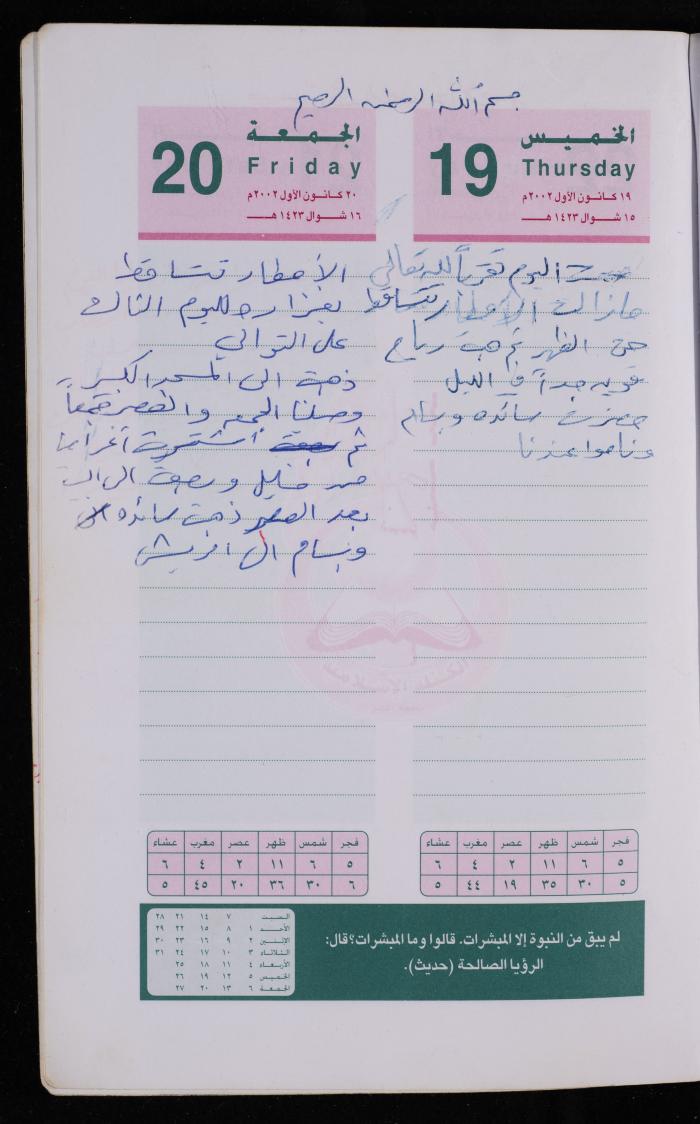 بسم الله الرحمن الرحيم
الخميس
19
Thursday
١٩ كانون الأول ٢٠٠٢م
١٥ شوال ١٤٢٣ هـ
صمت اليوم تقرباً لله تعالى
مازالت الأمطار تتساقط
حتى الظهر ثم هبت رياح
قويه جداً في الليل
حضرت سائده وبسام
وناموا عندنا
الجمعة
20
Friday
٢٠ كانون الأول ٢٠٠٢م
١٦ شوال ١٤٢٣ هـ
الأمطار تتساقط
بغزاره لليوم الثالث
على التوالي
ذهبت الى المسجد الكبير
وصلنا الجمعه والعصر جمعاً
ثم اشتريت أغراضاً
من ورجعت الى البيت
بعد العصر ذهبت سائده
وبسام الى
فجر شمس ظهر عصر مغرب عشاء
٥ ٦ ١١ ٢ ٤ ٦
٥ ٣٠ ٣٥ ١٩ ٤٤ ٥
فجر شمس ظهر عصر مغرب عشاء
٥ ٦ ١١ ٢ ٤ ٦
٦ ٣٠ ٣٦ ٢٠ ٤٥ ٥
لم يبق من النبوة إلا المبشرات. قالوا وما المبشرات؟ قال:
الرؤيا الصالحة (حديث).
السبت ٧ ١٤ ٢١ ٢٨
الأحد ١ ٨ ١٥ ٢٢ ٢٩
الإثنين ٢ ٩ ١٦ ٢٣ ٣٠
الثلاثاء ٣ ١٠ ١٧ ٢٤ ٣١
الأربعاء ٤ ١١ ١٨ ٢٥
الخميس ٥ ١٢ ١٩ ٢٦
الجمعة ٦ ١٣ ٢٠ ٢٧
الكتلة الإسلامية